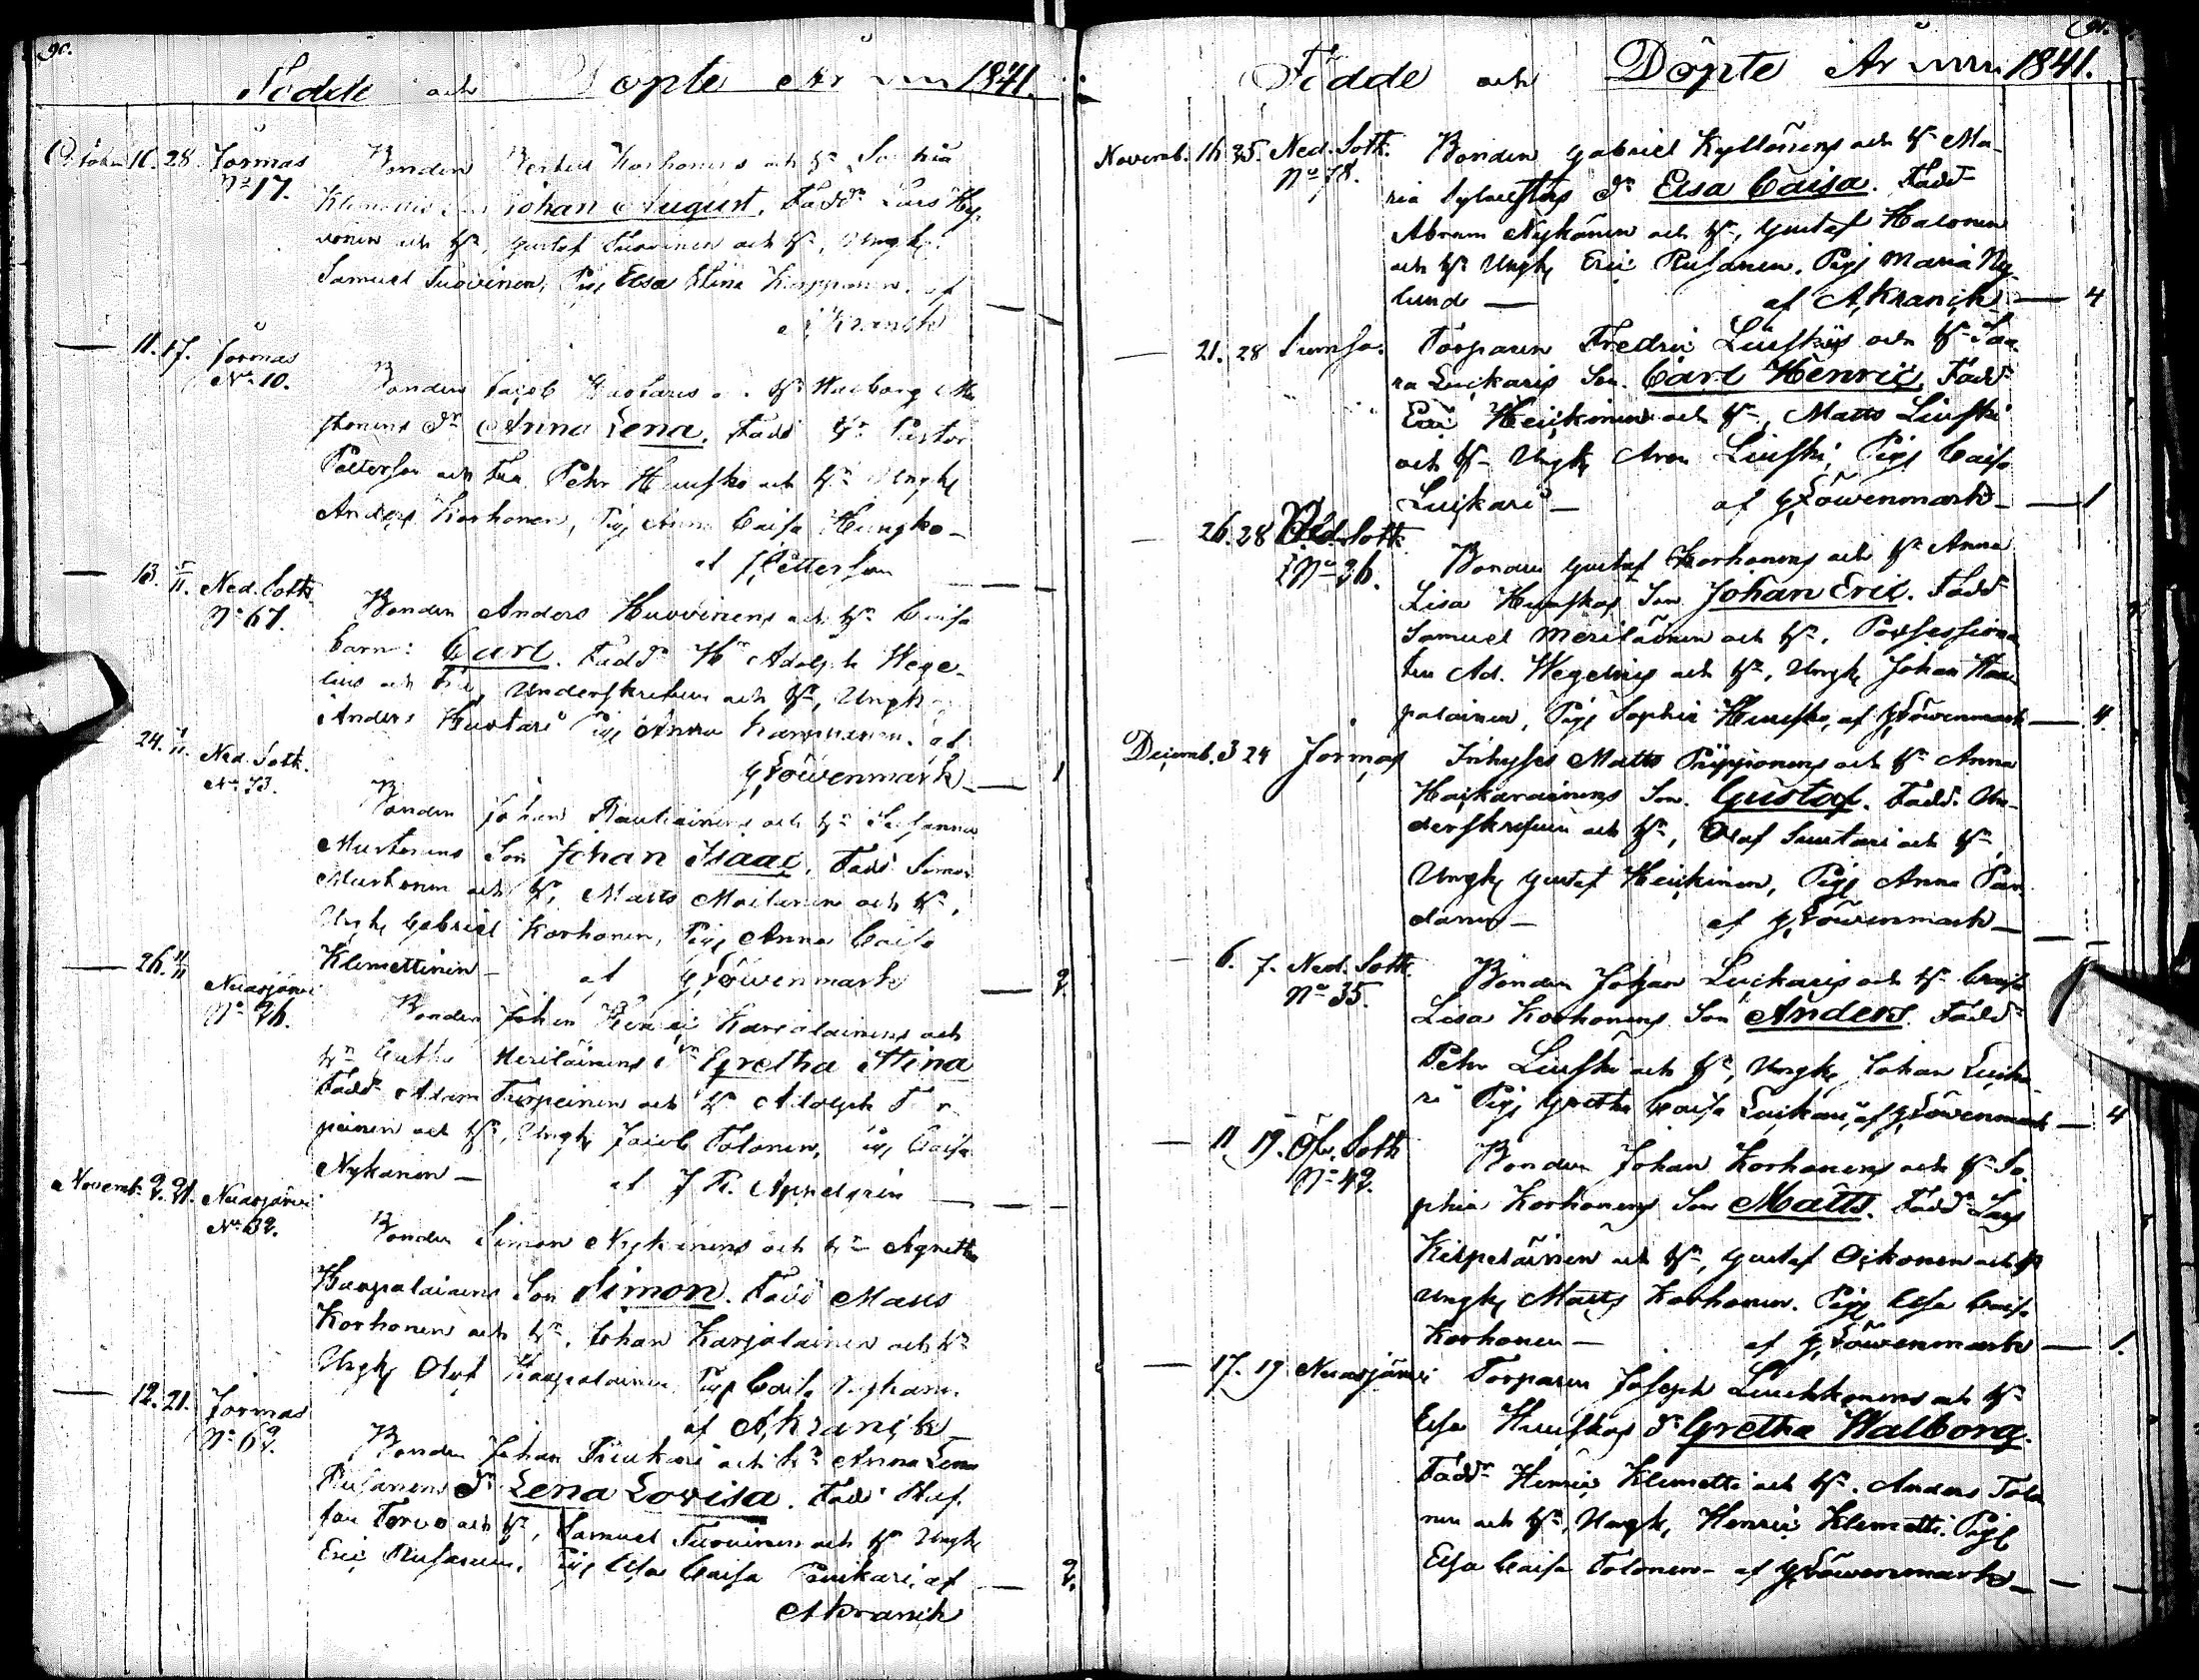 90.
Födde och Döpte År 1841.
October 16. 28. Jormas Bonden Korhonens och H:u Sophia
N:o 17. Johan August. Fadd:r Lars Hy-
vönen och H:u, Gustaf Tuovinen och H:u, Ungk.
Samuel Tuovinen, Pig. Elsa Stina Kopponen. af
A. Kranck
— 11. 17. Jormas
N:o 10. Bonden Jacob Huotaris H:u Walborg
D:r Anna Lena. Fadd H:r Pastor
Petterson och Fru Pehr Huusko och H:u Ungk.
Anders Korhonen, Pig. Anna Caisa Huusko —
af Petterson
— 13. 5/11. Ned. Sotk.
N:o 67. Bonden Anders Huovinens och H:u Caisa
barn: Carl. Fadd:r H:r Adolph Wege-
lius och Fru, Underskrifven och H:u, Ungk.
Anders Huotari Pig. Anna af
G. Löwenmark — 1
24. 11. Ned. Sotk.
N:o 73. Bonden Johan Rautiainens och H:u Susanna
Mustonens Son Johan Isaac. Fadd Simon
Mustonen och H:u, Matts Moilanen och H:u,
Ungk. Gabriel Korhonen, Pig. Anna Caisa
Klemettinen — af G. Löwenmark — 2.
— 26. 11/11 Nuasjärvi
N:o 26. Bonden Johan Henric Karjalainens och
H:u Gretha Meriläinens D:r Gretha Stina
Fadd:r Adam Turpeinen och H:u Adolph Tur-
peinen och H:u, Ungk. Jacob Tolonen, Pig. Caisa
Nykänen — af J. R. Appelgrén —
Novemb. 2. 21. Nuasjärvi
N:o 32. Bonden Simon Nykänens och H:u Agnetha
Haapalainens Son Simon. Fadd Matts
Korhonen och H:u, Johan Karjalainen och H:u
Ungk. Olof Haapalainen, Pig. Caisa
af A. Kranck —
— 12. 21. Jormas
N:o 62. Bonden Johan Piuikari och H:u Anna Lena
Rusanens D:r Lena Lovisa. Fadd Stef-
fan Torvo och H:u, Samuel Tuovinen och H:u Ungk.
Eric Rusanen. Pig. Elsa Caisa Piuikari, af — 2.
A Kranck
91.
Födde och Döpte År 1841.
Novemb. 16 25. Ned. Sotk. Bonden Gabriel Kyllönens och H:u Ma-
N:o 78. ria Sylvesters D:r Elsa Caisa. Fadd:r
Abram Nykänen och H:u, Gustaf Halonen
och H:u Ungk. Eric Rusanen, Pig. Maria Ny-
lund — af A. Kranck — 4
— 21. 28 Sumsa. Torparen Fredric Liuskis och H:u Saa-
ra Luikaris Son. Carl Henric, Fadd:r
Eric Heikkinen och H:u, Matts Liuski
och H:u Ungk. Aron Liuski, Pig. Caisa
Luikari — af G. Löwenmark — 1
— 26. 28 Öfv. Sotk.
N:o 26. Bonden Gustaf Korhonens och H:u Anna
Lisa Huuskos Son Johan Eric. Fadd:r
Samuel Meriläinen och H:u, Possessiona-
ten Ad. Wegelius och H:u, Ungk. Johan Haa-
palainen, Pig. Sophia Huusko, af G. Löwenmark — 4.
Decemb. 3 24 Jormas Inhyses Matts Piipponens och H:u Anna
Haikarainens Son. Gustaf. Fadd. Un-
derskrifven och H:u, Olof Suutari och H:u,
Ungk. Gustaf Heikkinen, Pig. Anna
— af G. Löwenmark —
— 6. 7. Ned. Sotk.
N:o 35. Bonden Johan Luikaris och H:u Caisa
Lisa Korhonens Son Anders. Fadd:r
Pehr Liuski och H:u, Ungk. Johan Luika-
ri Pig. Gretha Caisa Luikari, af G. Löwenmark — 4
— 11 19. Öfv. Sotk
N:o 42. Bonden Johan Korhonens och H:u So-
phia Korhonens Son Matts. Fadd:r Lars
Kilpeläinen och H:u, Gustaf Oikonen och H:u
Ungk. Matts Korhonen. Pig. Elsa Caisa
Korhonen — af G. Löwenmark — 1.
— 17. 19 Nuasjärvi Torparen Joseph Luukkonens och H:u
Elsa Huuskos D:r Gretha Walborg.
Fadd:r Henric Klemetti och H:u. Anders Tolo-
nen och H:u, Ungk. Henric Klemetti. Pig.
Elsa Caisa Tolonen — af G. Löwenmark —